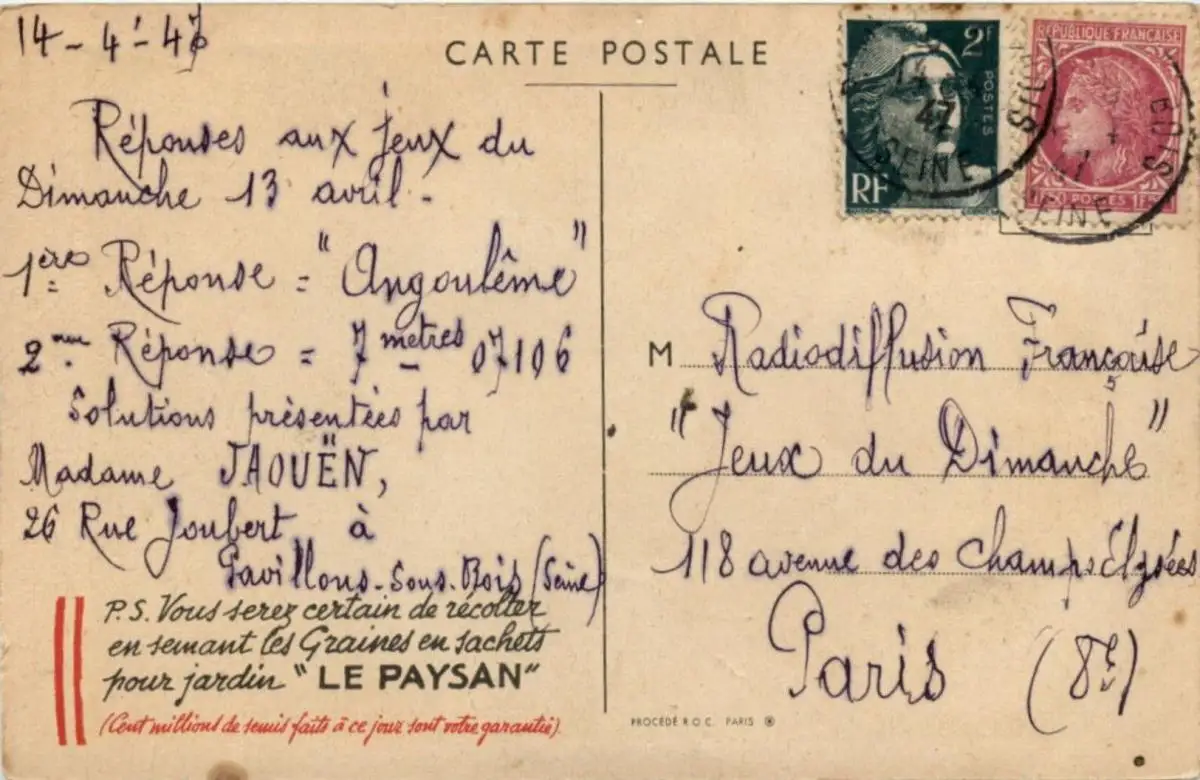 14-4-47
CARTE POSTALE
Réponses aux Jeux du
Dimanche 13 avril.
1ère Réponse = "Angoulême"
2me Réponse = 7 mètres 07106
Solutions présentées par
Madame JAOUËN,
26 Rue Joubert à
Pavillons-sous-Bois (Seine)
P.S. Vous serez certain de récolter
en semant les Graines en sachets
pour jardin "LE PAYSAN"
(Cent millions de semis faits à ce jour sont votre garantie).
2F
POSTES
RF
47
SEINE
RÉPUBLIQUE FRANÇAISE
1F50 POSTES 1F50
BOIS
SEINE
M Radiodiffusion Française
"Jeux du Dimanche"
118 avenue des Champs Elysées
Paris (8e)
PROCÉDÉ R.O.C. PARIS